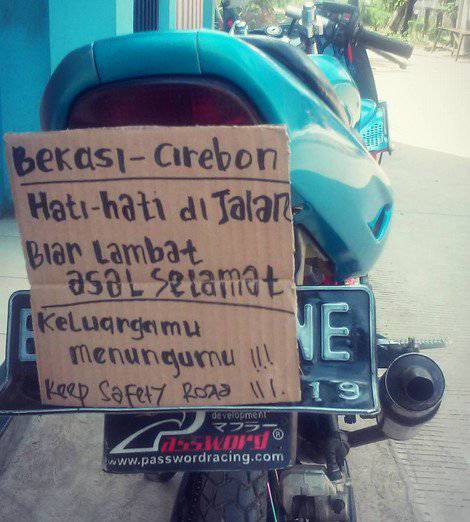 Bekasi - Cirebon
Hati-hati di Jalan
Biar Lambat
asal Selamat
Keluargamu
menungumu !!!
Keep Safety Road !!!
NE
19
development
マフラー
Password®
www.passwordracing.com